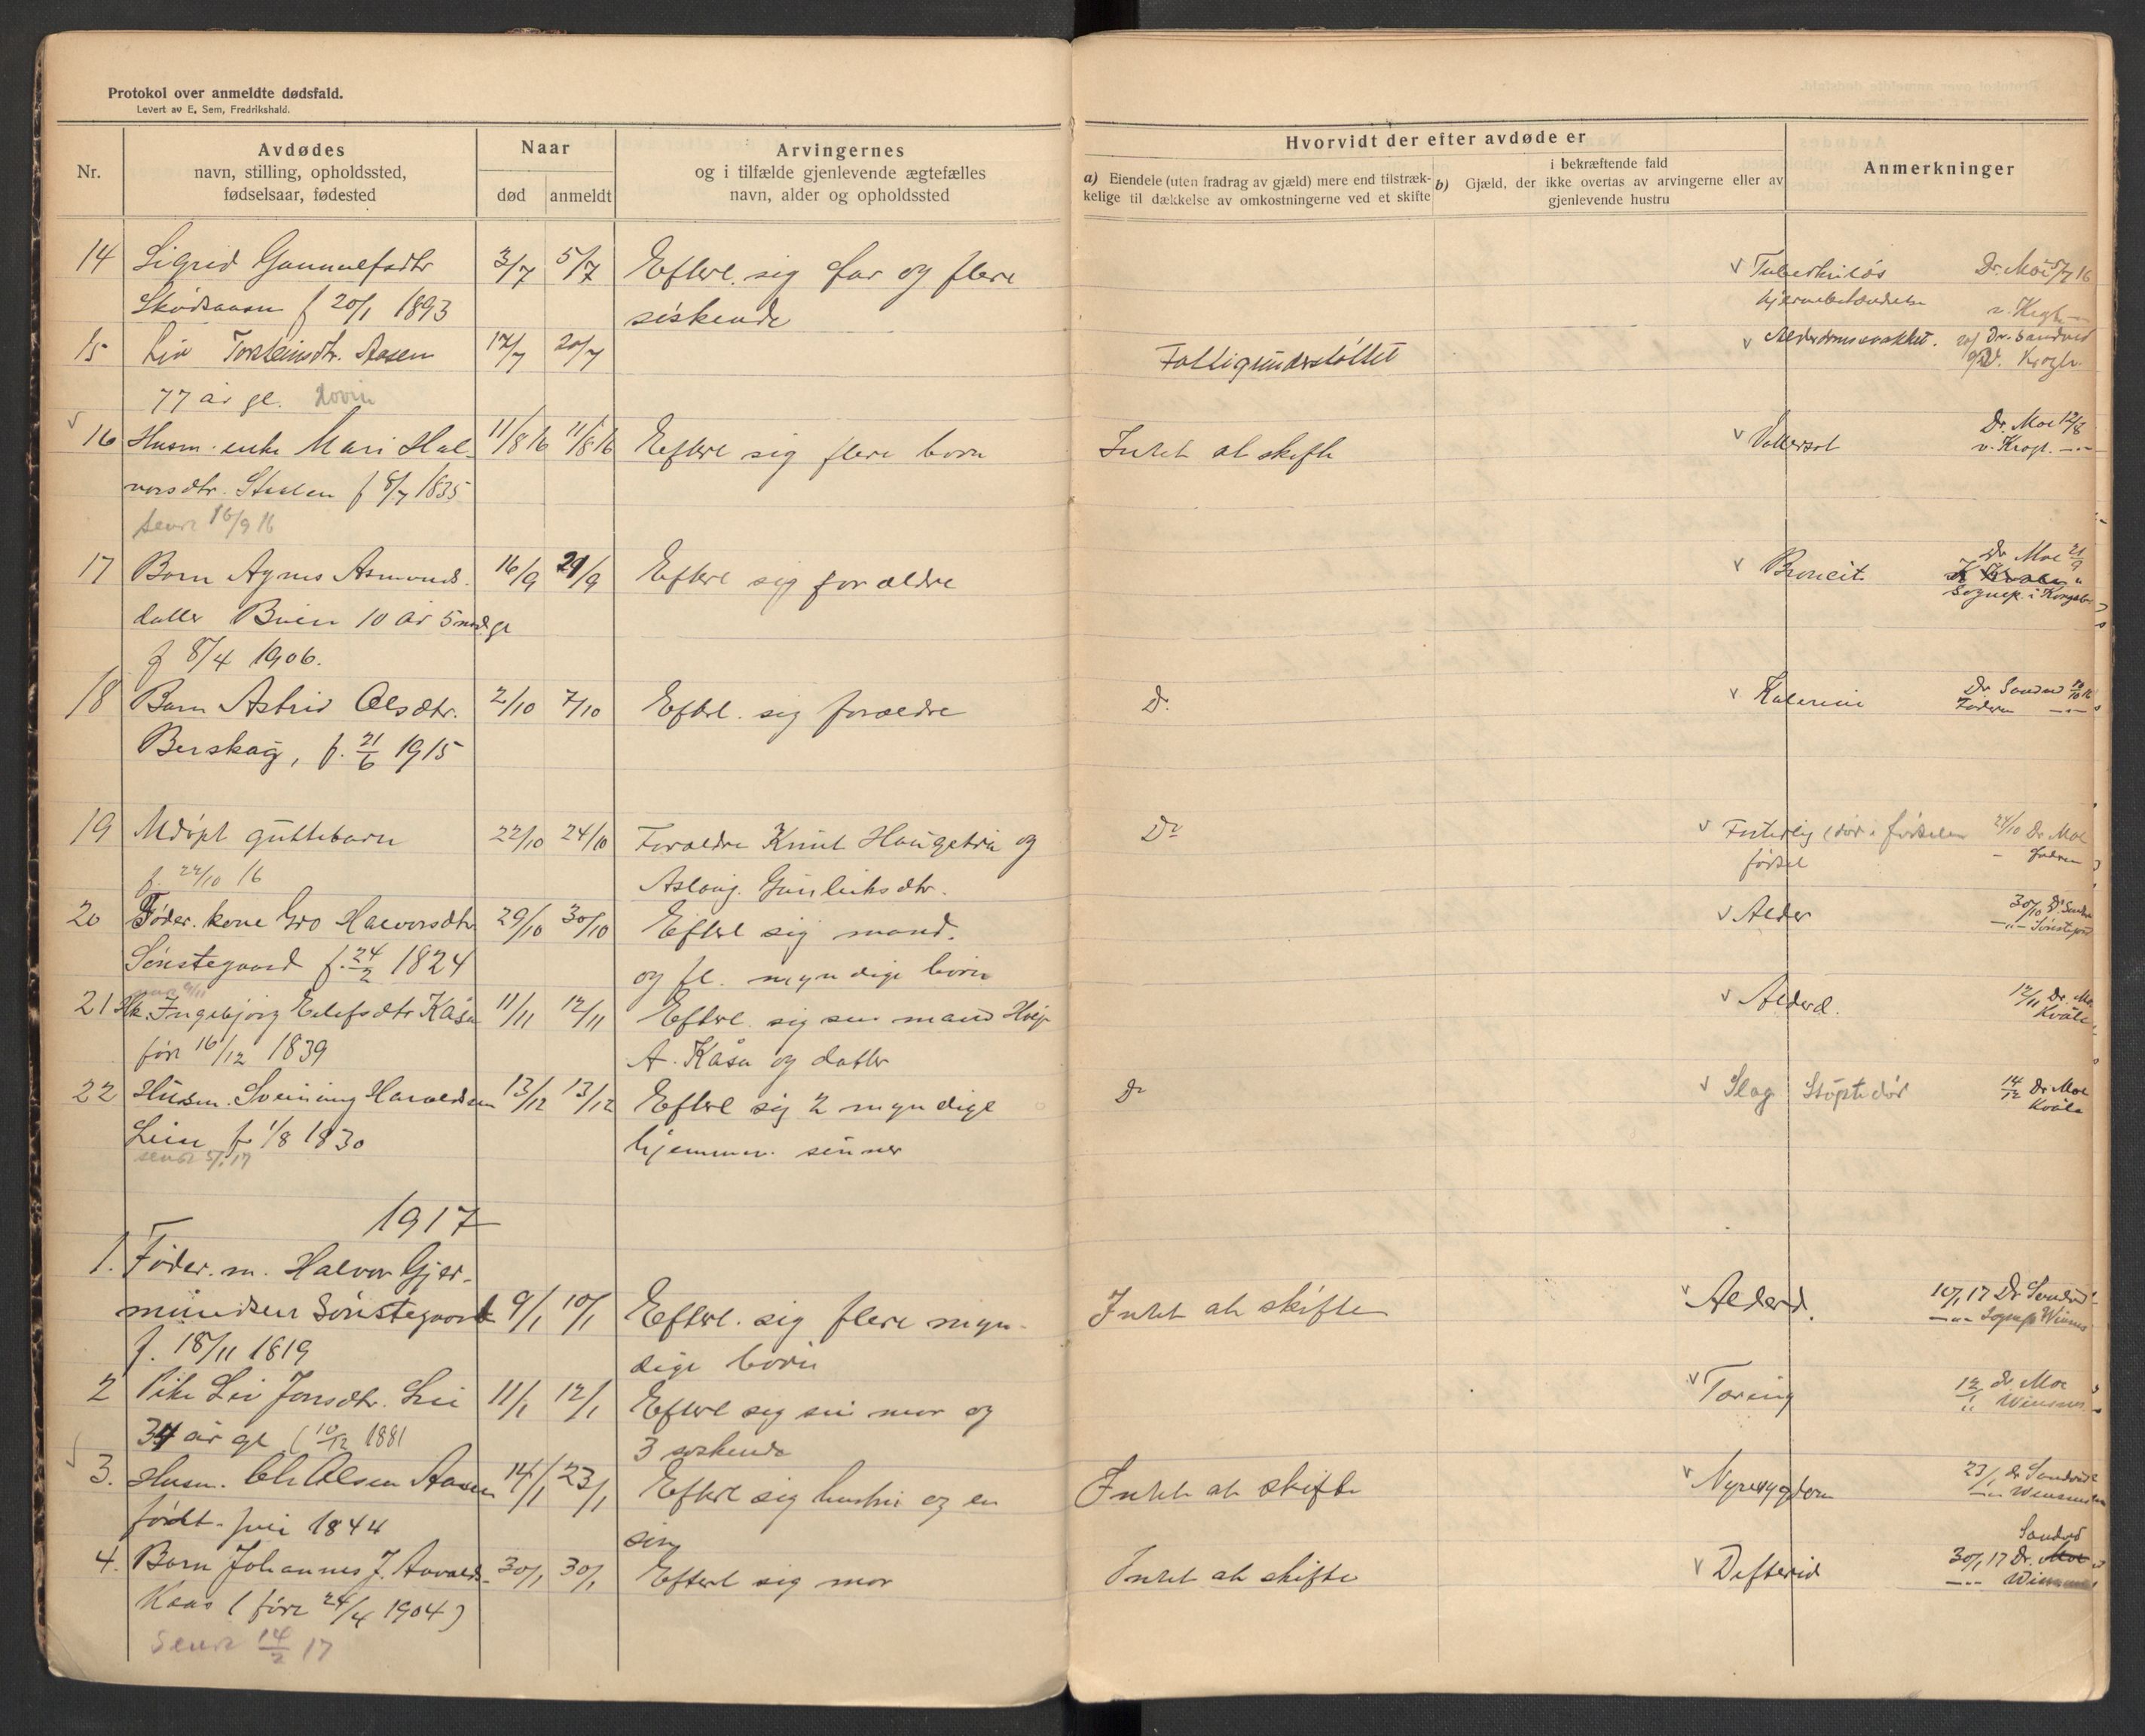 Protokol over anmeldte dødsfald.
Levert av E. Sem, Fredrikshald.
Nr.
Avdødes
navn, stilling, opholdssted,
fødselsaar, fødested
Naar
død
anmeldt
Arvingernes
og i tilfælde gjenlevende ægtefælles
navn, alder og opholdssted
Hvorvidt der efter avdøde er
a) Eiendele (uten fradrag av gjæld) mere end tilstræk-
kelige til dækkelse av omkostningerne ved et skifte
i bekræftende fald
b) Gjæld, der ikke overtas av arvingerne eller av
gjenlevende hustru
Anmerkninger
14 Sigrid Gunnulfsdtr 3/7 5/7 Efterl. sig far og flere Dr. Moe 5/7 16
f 20/1 1893 søskende
15 Liv Torsteinsdtr. Aasen 17/7 20/7 Fattigunderstøttet Alderdomssvakhet. Dr. Sandvid
77 år gl. Hovin Krogh.
16 Husm. enke Mari Hal- 11/8 16 11/8 16 Efterl sig flere born Intet at skifte Vattersot Dr. Moe 12/8
vorsdtr. f 8/7 1835 v. Krogh.
Send 16/9 16
17 Barn Agnes Asmunds- 16/9 21/9 Efterl sig forældre Broncit Dr Moe 21/9
datter Buen 10 år 5 mnd gl Sognep. i
f 8/4 1906.
18 Barn Astrid Olsdtr. 2/10 7/10 Efterl. sig forældre Do Dr Sandvid 10/10 16
Berskag, f. 21/6 1915 Faderen
19 Udøpt guttebarn 22/10 24/10 Forældre Knut Haugetri og Do 24/10 Dr Moe
f. 22/10 16 Aslaug Gunleiksdtr. fødsel
20 Føder. kone Gro Halvorsdtr 29/10 30/10 Efterl sig mand. Alder 30/10
Sønstegaard f. 24/2 1824 og fl. myndige børn Sønstegård
21 Hk. Ingebjørg Eilefsdtr Kåsa 11/11 12/11 Efterl. sig sin mand Alderd. 12/11 Dr. Moe
født 16/12 1839 A. Kåsa og datter Kvåle
22 Husm. Sveinung Haraldsen 13/12 13/12 Efterl sig 2 myndige Do Slag 14/12 Dr Moe
Lien f 1/8 1830 hjemmev. sønner Kvåle
Sendt 5/1 17
1917
1. Føder. m. Halvor Gjer-
mundsen Sønstegaard 9/1 10/1 Efterl. sig flere myn- Intet at skifte Alderd. 10/1 17 Dr Sandvid
f. 18/11 1819 dige børn Sognep. Winsnes
2 Pike Liv Jonsdtr. Lii 11/1 12/1 Efterl sig sin mor og Tæring 12/1 Dr Moe
34 år gl ( 10/12 1881 3 søskende Winsnes
3. Husm. Ole Olsen Aasen 14/1 23/1 Efterl sig hustru og en Intet at skifte Nyresygdom 23/1 Dr Sandvid
født juli 1844 søn Winsnes
4. Barn Johannes J. 30/1 30/1 Efterl sig mor Intet at skifte Difterid 30/1 17 Dr. Moe Sandvid
Kaas ( født 24/4 1904 )
Sendt 14/2 17